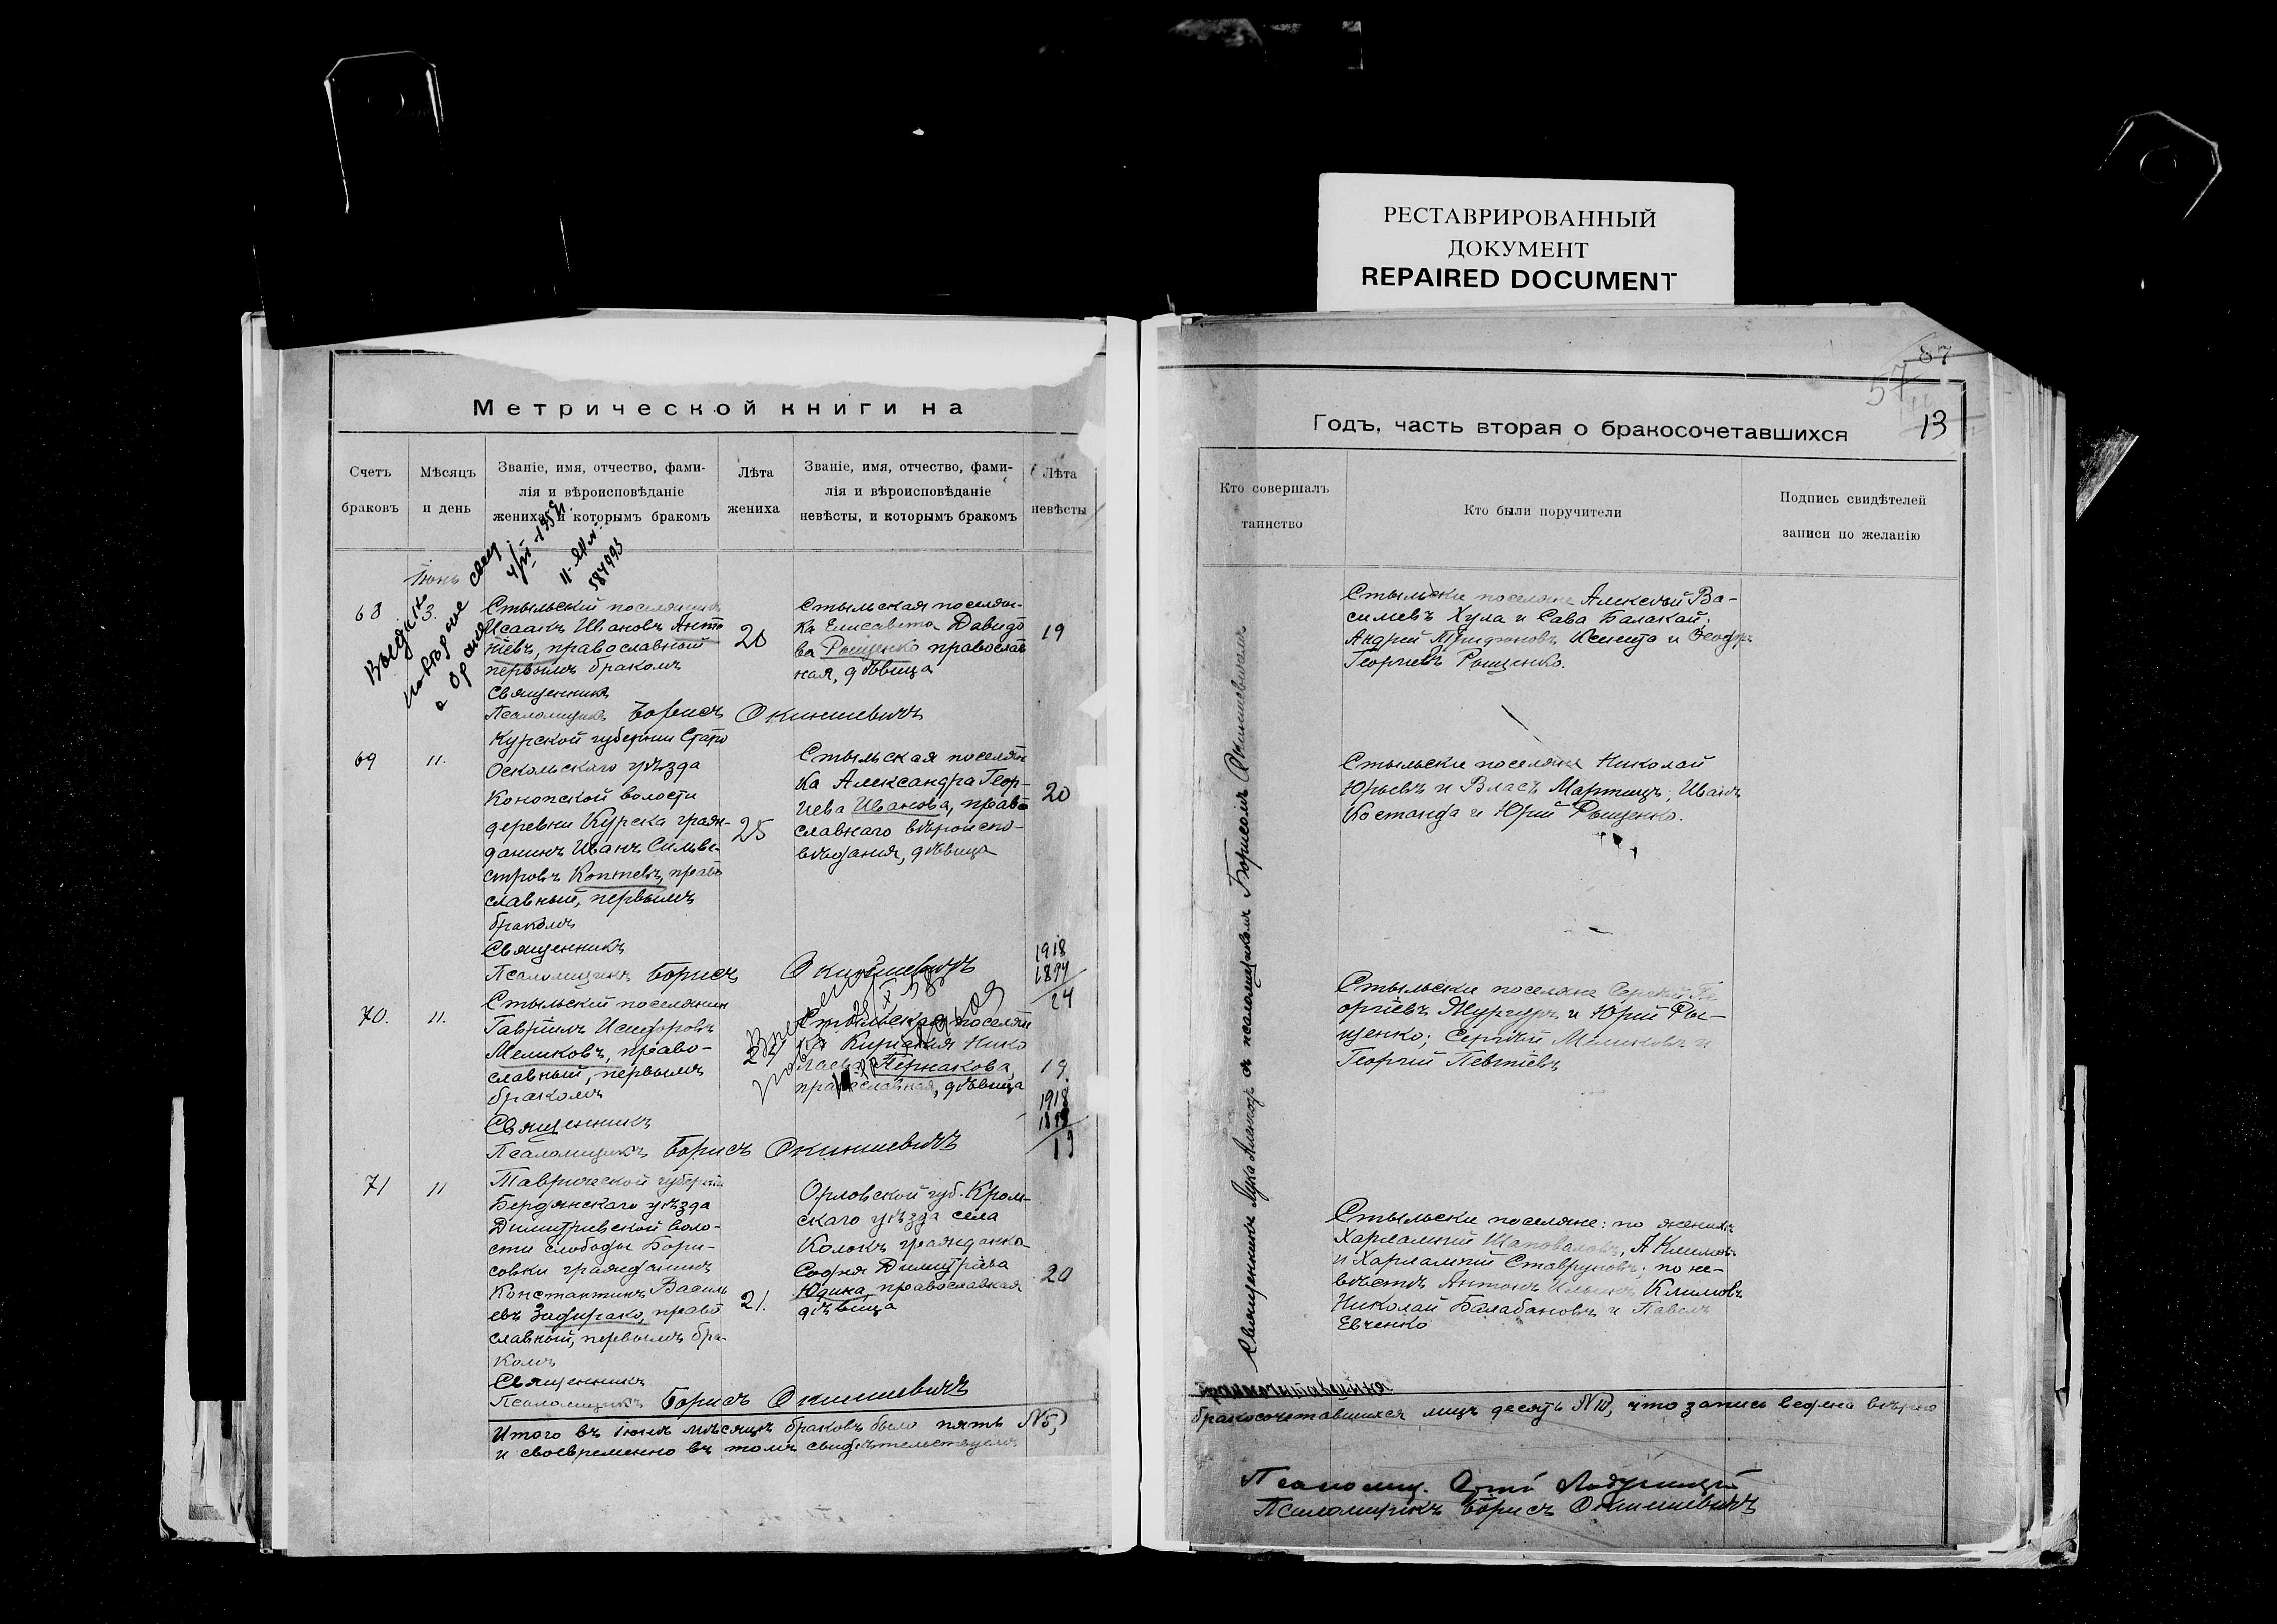 РЕСТАВРИРОВАННЫЙ
ДОКУМЕНТ
REPAIRED DOCUMENT
Метрической книги на
Счетъ
браковъ
Мѣсяцъ
и день
Званіе, имя, отчество, фами-
лія и вѣроисповѣданіе
жениха, и которымъ бракомъ
Лѣта
жениха
Званіе, имя, отчество, фами-
лія и вѣроисповѣданіе
невѣсты, и которымъ бракомъ
Лѣта
невѣсты
584493
Іюнь
68
3.
Стыльскій поселянинъ
Исаакъ Ивановъ Анто
ніевъ, православный
первымъ бракомъ
20
Стыльская поселян-
ка Елисавета Давидо
ва Рыщенко православ
ная, дѣвица
19
Священникъ
Псаломщикъ Борисъ Окиншевичъ
69
11.
Курской губерніи Старо
Оскольскаго уѣзда
волости
деревни Курска граж-
данинъ Иванъ Сильве-
стровъ Коптевъ, право
славный, первымъ
бракомъ
25
Стыльская поселян
ка Александра Геор-
гіева Иванова, право
славнаго вѣроиспо-
вѣданія, дѣвица
20
Священникъ
Псаломщикъ Борисъ Окиншевичъ
1918
1894
24
70.
11.
Стыльскій поселянин
Гавріилъ Исидоровъ
Меликовъ, право-
славный, первымъ
бракомъ
Стыльская поселян
Нико
лаева
православная, дѣвица
19
1918
19
Священникъ
Псаломщикъ Борисъ Окиншевичъ
71
11
Таврической губерніи
Бердянскаго уѣзда
Димитріевской воло-
сти слободы Бори-
совки гражданинъ
Константинъ Василь
евъ право
славный, первымъ бра-
комъ
21.
Орловской губ. Кром-
скаго уѣзда села
Колокъ гражданка
Софія Димитріева
Юдина, православная
дѣвица
20
Священникъ
Псаломщикъ Борисъ Окиншевичъ
Итого въ іюнѣ мѣсяцѣ браковъ было пять №5,
и своевременно въ томъ свидѣтельствуемъ
87
57
13
Годъ, часть вторая о бракосочетавшихся
Кто совершалъ
таинство
Кто были поручители
Подпись свидѣтелей
записи по желанію
Священникъ Лука съ псаломщикомъ Борисомъ Окиншевичемъ
Стыльскіе поселяне Алексѣй Ва-
сильевъ Хула и Сава Балакай;
Андрей Трифоновъ и Ѳеодоръ
Георгіевъ Рыщенко.
Стыльскіе поселяне Николай
Юрьевъ и Власъ Мартицъ; Иванъ
Костанда и Юрій Рыщенко.
Стыльскіе поселяне Сергѣй Ге
оргіевъ и Юрій Ры-
щенко; Сергѣй Меликовъ и
Георгій
Стыльскіе поселяне: по женихѣ
Харлампій Шаповаловъ, А Климовъ
и Харлампій Ставруновъ; по не-
вѣстѣ Антонъ Климовъ
Николай Балабановъ и Павелъ
Евченко
бракосочетавшихся лицъ десять №10, что запись ведена вѣрно
Псаломщ.
Псаломщикъ Борисъ Окиншевичъ